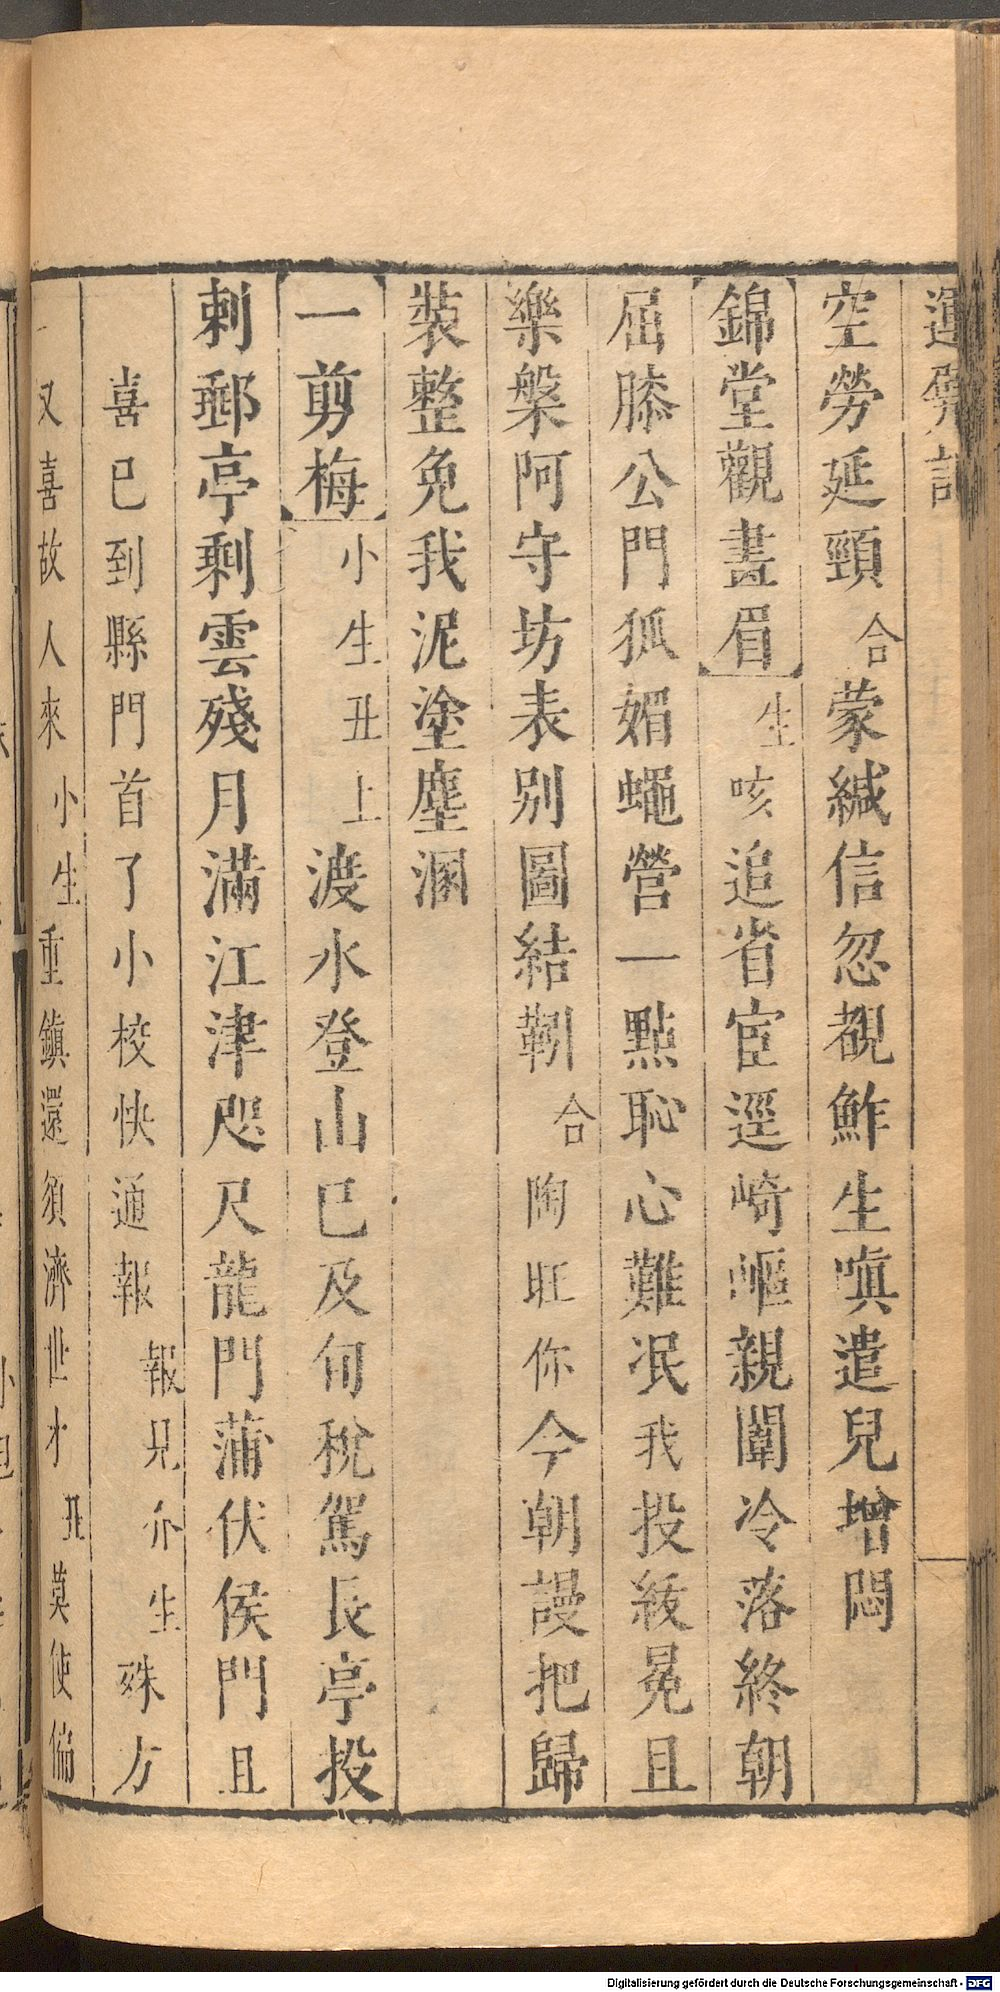 空勞延頸合蒙緘信忽覩鮓生嗔遣兒增悶
錦堂觀畫眉生咳追省宦逕崎嶇親闈冷落終朝
屈膝公門狐媚蠅營一點恥心難冺我投紱冕且
樂槃阿守坊表别圖結靷合陶旺你今朝謾把歸
裝整免我泥塗塵溷
一剪梅小生丑上渡水登山已及旬稅駕長亭投
刺郵亭剩雲殘月滿江津咫尺龍門蒲伏侯門且
喜已到縣門首了小校快通報報見介生殊方
又喜故人來小生重鎮還須濟世才丑莫使偏
Digitalisierung gefördert durch die Deutsche Forschungsgemeinschaft - DFG